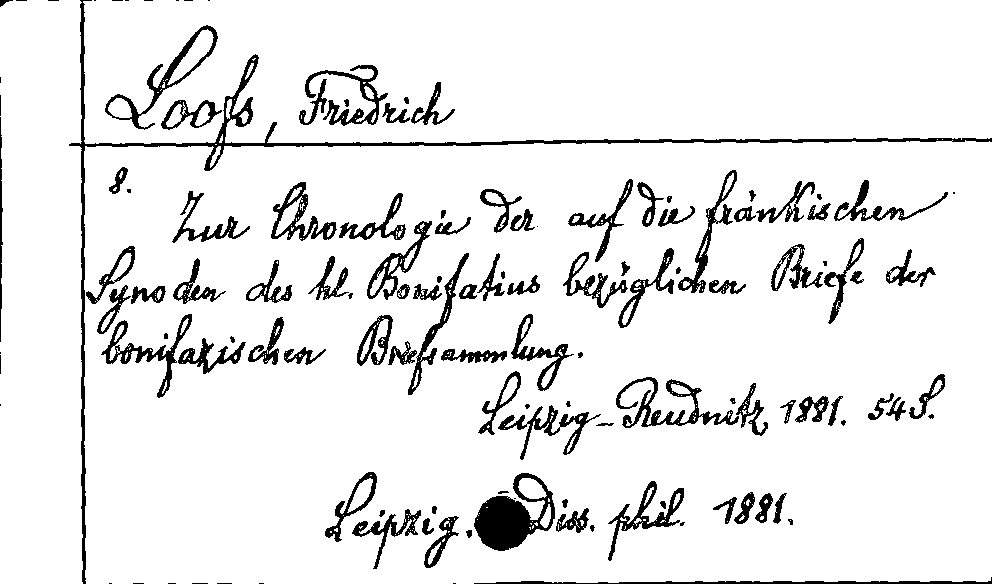 Loofs, Friedrich
8.
Zur Chronologie der auf die fränkischen
Synoden des hl. Bonifatius bezüglichen Briefe der
bonifazischen Briefsammlung.
Leipzig-Reudnitz 1881. 54 S.
Leipzig. Diss. phil. 1881.